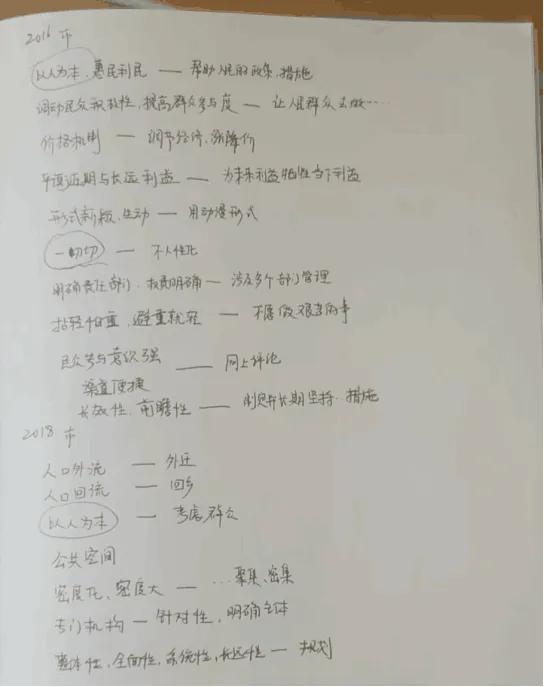 2016 市
以人为本，惠民利民 — 帮助人民的政策、措施
调动民众积极性，提高群众参与度 — 让人民群众去做……
价格机制 — 调节经济，涨降价
平衡近期与长远利益 — 为未来利益牺牲当下利益
形式新颖、生动 — 用动漫形式
一刀切 — 不人性化
明确责任部门、权责明确 — 涉及多个部门管理
拈轻怕重，避重就轻 — 不愿做艰苦的事
民众参与意识强 — 网上评论
渠道便捷
长效性，前瞻性 — 制度并长期坚持、措施
2018 市
人口外流 — 外迁
人口回流 — 回乡
以人为本 — 考虑群众
公共空间
密度化、密度大 — …聚集、密集
专门机构 — 针对性，明确主体
整体性，全面性，系统性，长远性 — 规划